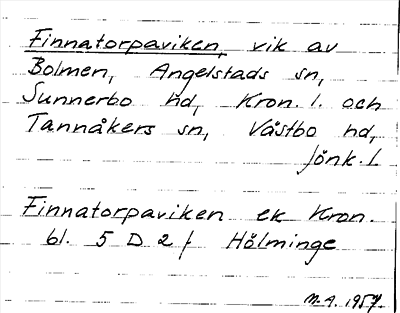 Finnatorpaviken, vik av
Bolmen, Angelstads sn,
Sunnerbo hd, Kron. l. och
Tannåkers sn, Västbo hd,
Jönk. l
Finnatorpaviken ek Kron.
bl. 5 D 2 f Hölminge
M.A. 1957.